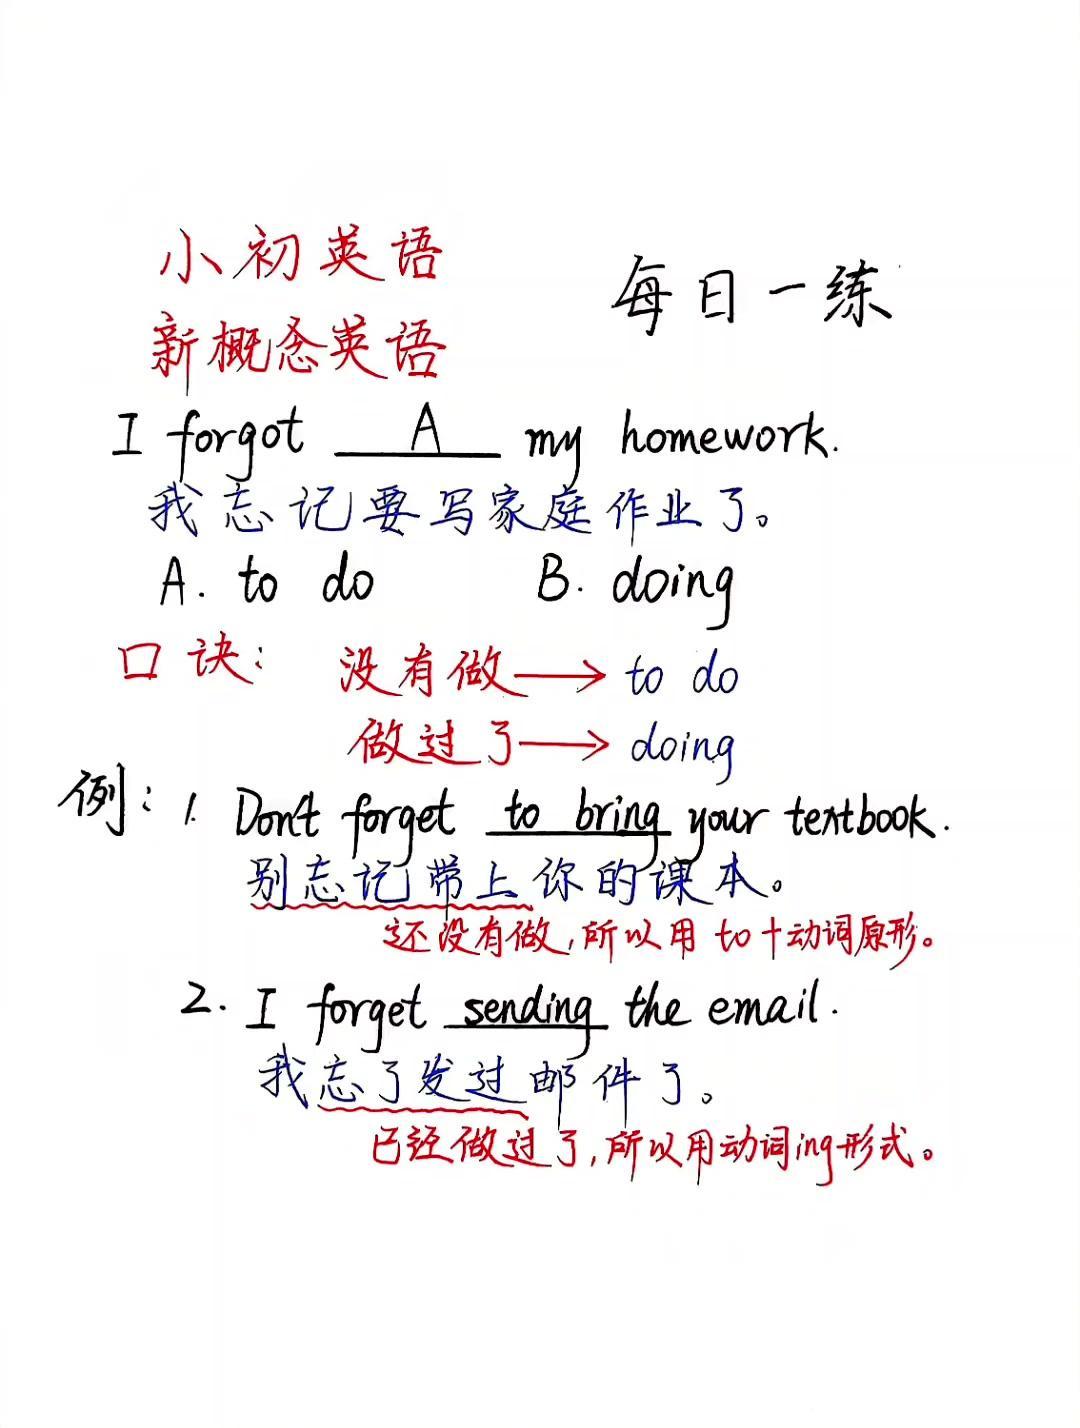 小初英语
每日一练
新概念英语
I forgot A my homework.
我忘记要写家庭作业了。
A. to do B. doing
口诀: 没有做→to do
做过了→doing
例: 1. Don't forget to bring your textbook.
别忘记带上你的课本。
还没有做,所以用 to+动词原形。
2. I forget sending the email.
我忘了发过邮件了。
已经做过了,所以用动词ing形式。